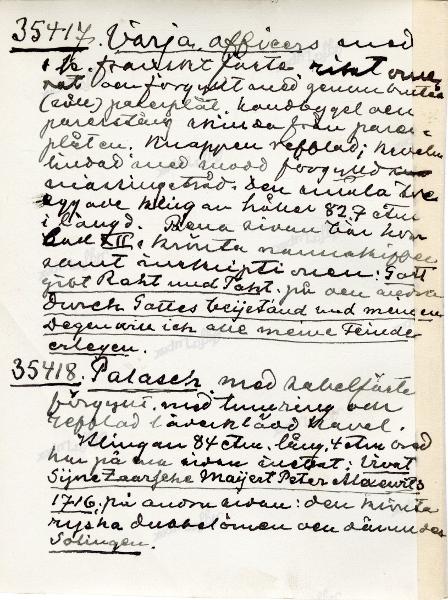 35417. Värja, officers med
s.k. franskt fäste, rikt orne-
rat och förgyllt med genombruten
parerplåt. Handbygel och
parerstång skilda från parer-
plåten. Knappen refflad; kaveln
lindad med snodd förgylld
mässingstråd. Den smala tve-
eggade klingan håller 82,7 ctm
i längd. Dena sidan bär kon
Carl XII:s krönta namnskiffer
samt inskriptionen: Gott
gibt Raht und Taht. på den andra
Durch Gottes beijstand und meinen
Degen will ich alle meine Feinde
erlegen.
35418. Palasch, med sabelfäste
förgyllt, med lumring och
refflad läderklädd kavel.
Klingan 84 ctm. lång, 4 ctm bred
har på ena sidan inetsat: Vivat
Sijne Zaarsche Maijert Peter Alexewits
1716. på andra sidan: den krönta
ryska dubbelörnen och därunder
Solingen.